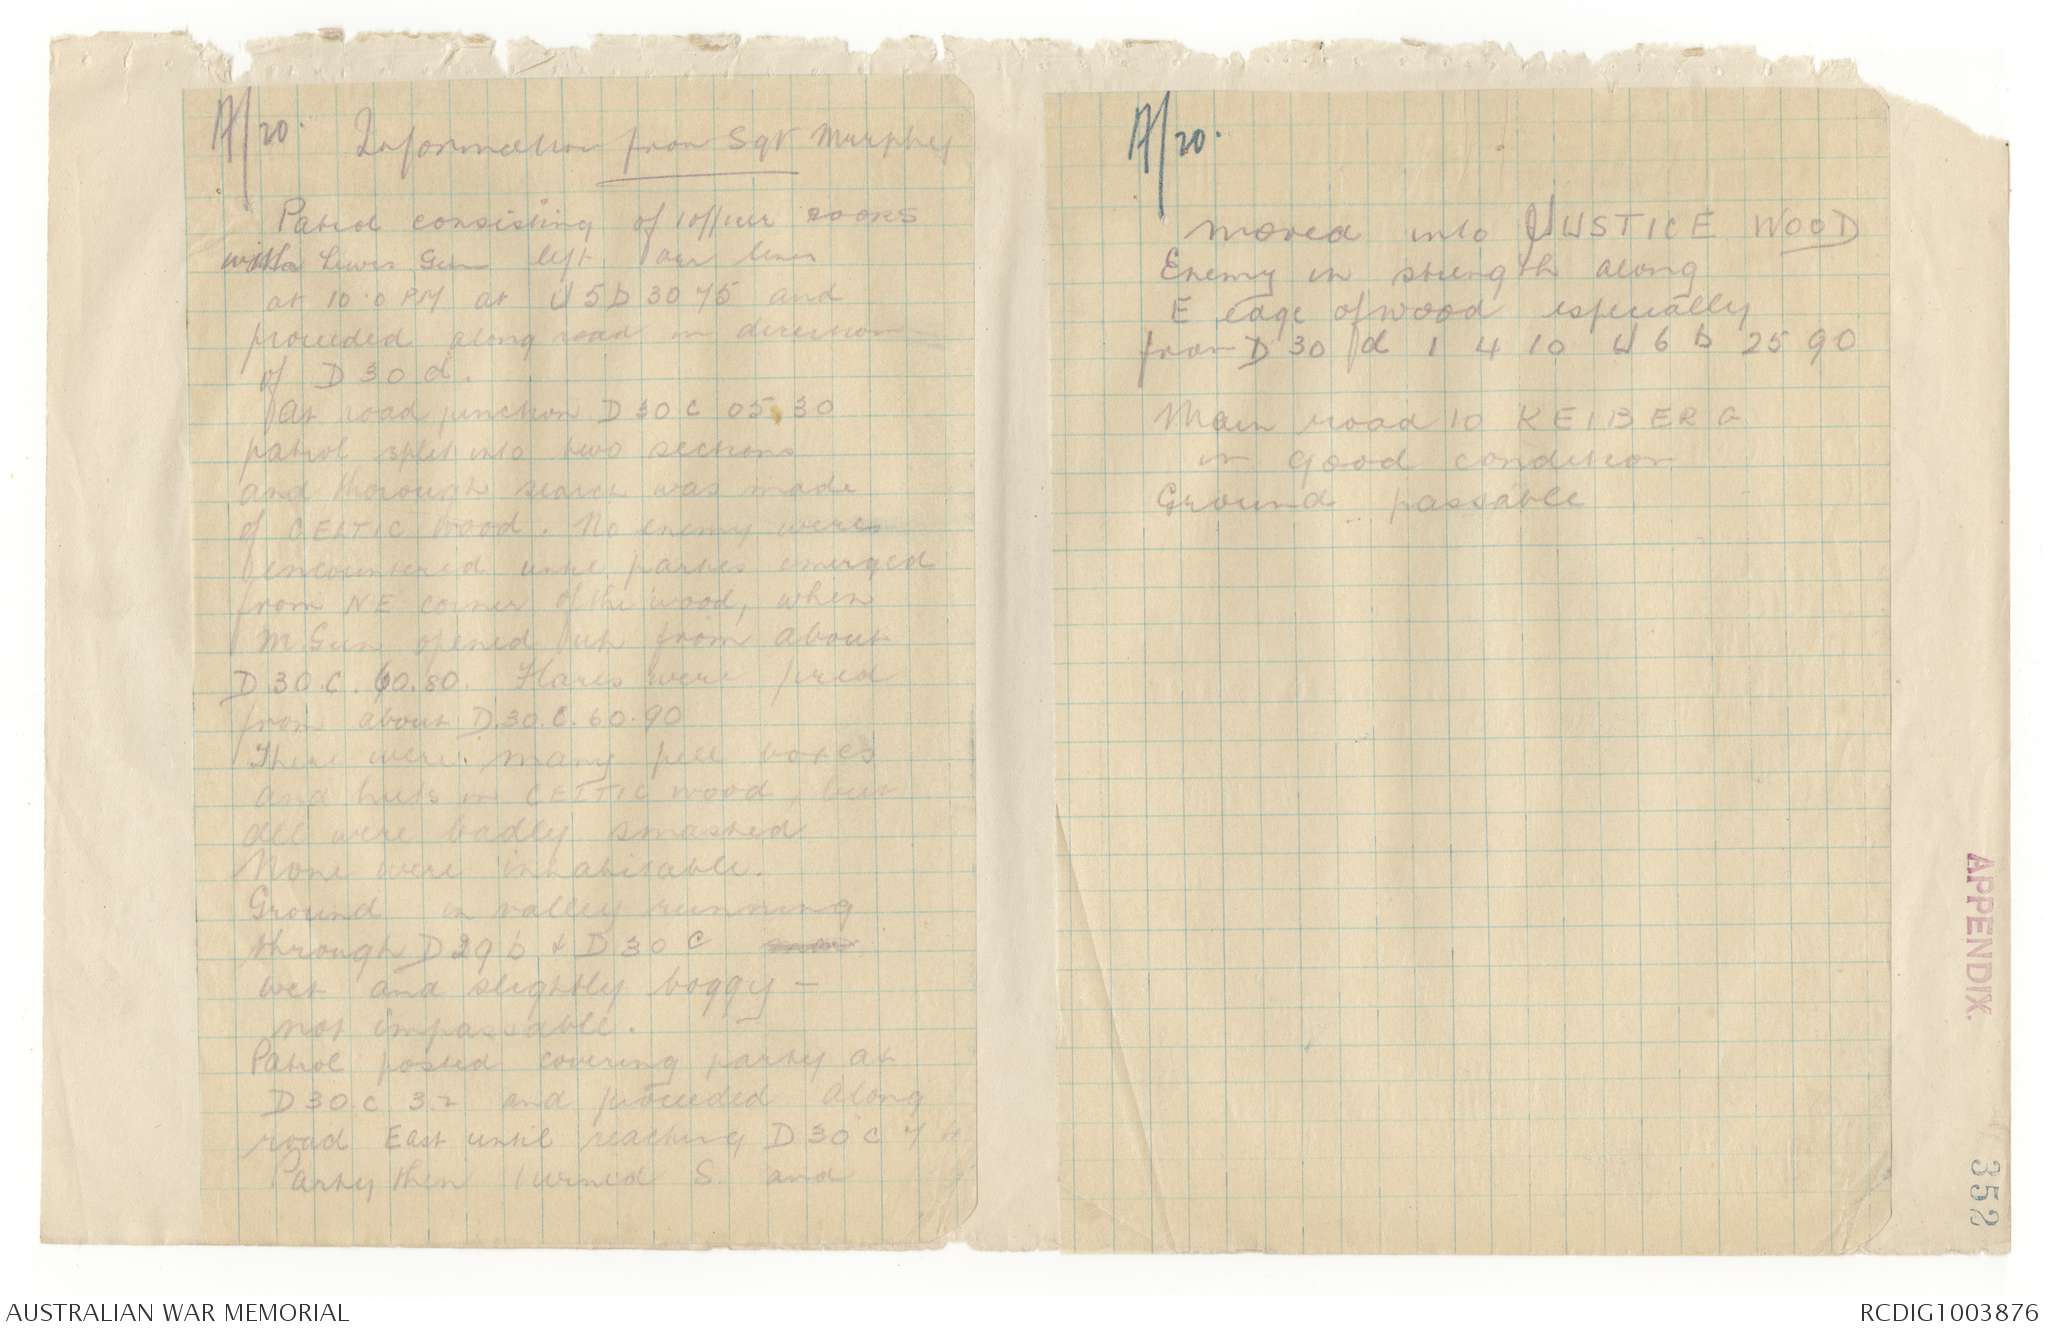 A/20.
Information from Sgt Murphy
Patrol consisting of 1 officer 20 ORS
with a Lewis Gun left our lines
at 10.0 PM at J5D 30 75 and
proceeded along road in direction
of D30d.
At road junction D30C 05,30
patrol split into two sections
and thorough search was made
of CELTIC Wood. No enemy were
encountered until parties emerged
from NE corner of the wood, when
M Gun opened up from about
D30.C.60.80. Flares were fired
from about D.30.C.60.90
There were many pill boxes
and huts in CELTIC wood, but
all were badly smashed
None were inhabitable.
Ground in valley running
through D29b & D30C
wet and slightly boggy -
not impassable.
Patrol posted covering party at
D30.C 3.2 and proceeded along
road East until reaching D30C 7 4
Party then turned S. and
A/20.
moved into JUSTICE WOOD
Enemy in strength along
E edge of wood especially
from D 30 d 1 4 to J 6 b 25 90
Main road to KEIBERG
in good condition
Ground passable
APPENDIX.
352
AUSTRALIAN WAR MEMORIAL
RCDIG1003876